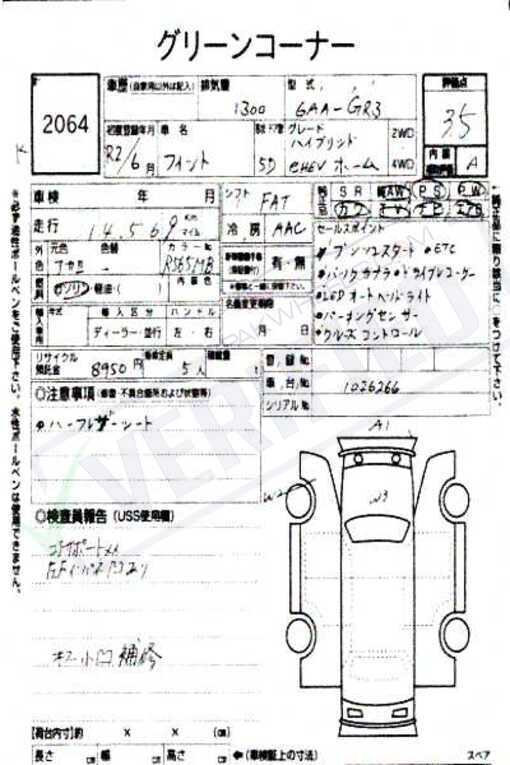 グリーンコーナー
2064
車歴 (自家用以外は記入) 排気量 型式 評価点
1300 6AA-GR3 3.5
初度登録年月 車名 ドア 形状 グレード 2WD 内装 A
R2/6月 フィット 5D ハイブリッド e:HEV ホーム 4WD
車検 年 月 シフト FAT SR AW PS PW
走行 14,569 Km マイル 冷房 AAC
セールスポイント
外色 元色 色替 カラーNo 内装色
アカII R565MB 有・無
プッシュスタート ETC
バックカメラ ドライブレコーダー
燃料 ガソリン・軽油・( )
LEDオートヘッドライト
パーキングセンサー
クルーズコントロール
輸入車用 輸入区分 ハンドル 名義変更期限
ディーラー・並行 左・右 月 日
リサイクル預託金 8950円 乗車定員 5人 積載量 t 登録No
車台No 1026266
シリアルNo
◎注意事項 (修復・不具合箇所および状態等)
ハーフレザーシート
A1
W2
W3
◎検査員報告 (USS使用欄)
コアサポート
キズ 小凹 補修
【荷台内寸】約 × × (cm)
長さ cm 幅 cm 高さ cm ←(車検証上の寸法)
スペア
※必ず油性ボールペンをご使用下さい。水性ボールペンは使用できません。
PAKWHEELS.COM
VERIFIED